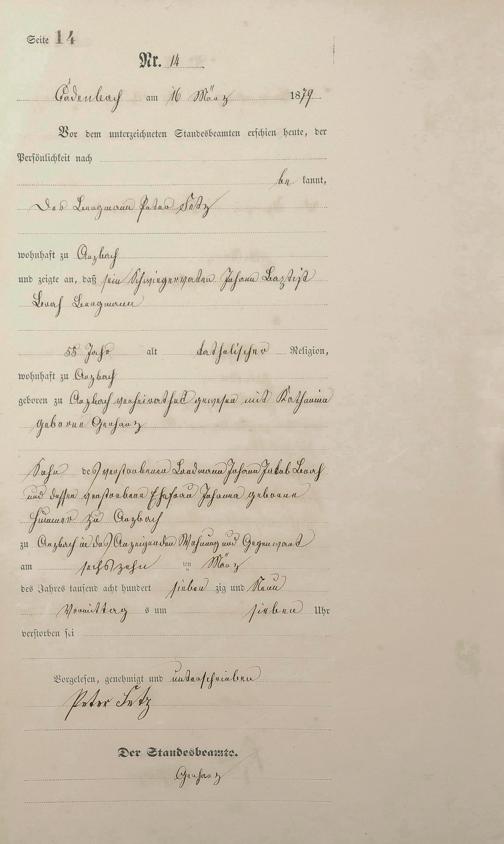 Seite 14
Nr. 14
Cadenbach am 16 März 1879
Vor dem unterzeichneten Standesbeamten erschien heute, der
Persönlichkeit nach
be kannt,
Der Bergmann Peter Fetz
wohnhaft zu Arzbach
und zeigte an, daß sein Schwiegervater Johann Baptist
Bergmann
55 Jahr alt katholischer Religion,
wohnhaft zu Arzbach
geboren zu Arzbach verheirathet gewesen mit Katharina
geborne Gerharz
Sohn des verstorbenen Landmann Johann Jakob
und dessen verstorbene Ehefrau Johanna geborene
zu Arzbach
zu Arzbach in des Anzeigenden Wohnung und Gegenwart
am sechszehn ten März
des Jahres tausend acht hundert sieben zig und Neun
Vormittag s um sieben Uhr
verstorben sei
Vorgelesen, genehmigt und unterschrieben
Peter Fetz
Der Standesbeamte.
Gerharz